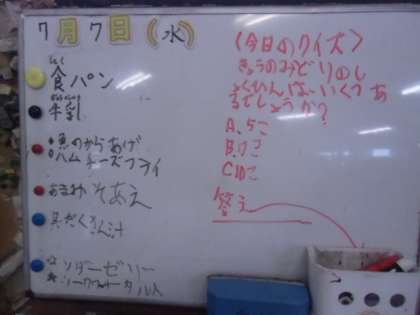 7月7日(水)
しょく
食パン
ぎゅうにゅう
牛乳
魚のからあげ
ハムチーズフライ
そあえ
具だくさん汁
ソダーゼリー
〈今日のクイズ〉
きょうのみどりのし
ょくひんは、いくつあ
るでしょうか?
A、5こ
B、7こ
C10こ
答え